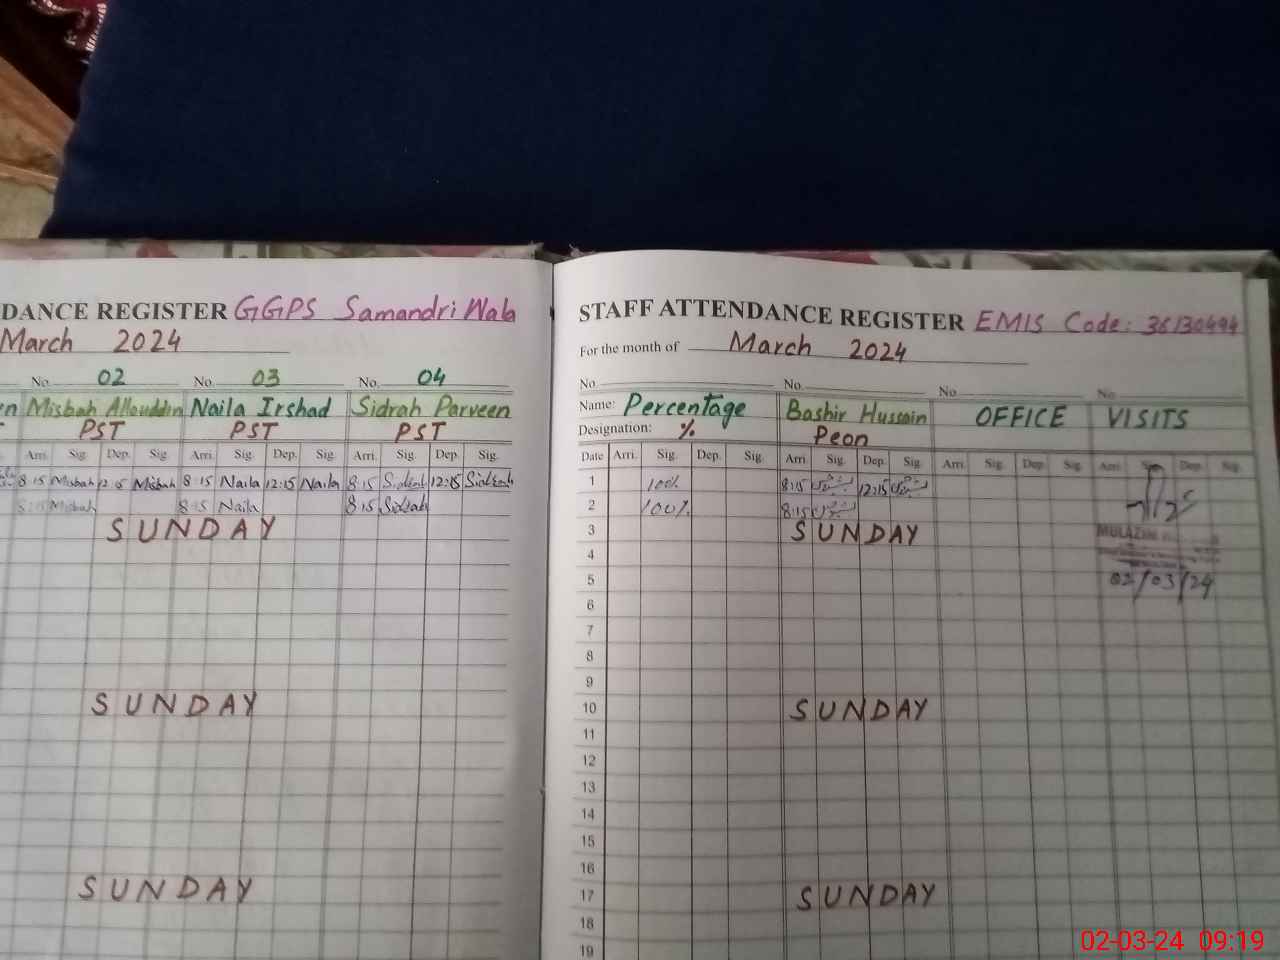 DANCE REGISTER GGPS Samandri Wala
March 2024
No. 02 No. 03 No. 04
Misbah Allauddin Naila Irshad Sidrah Parveen
PST PST PST
Arri. Sig. Dep. Sig. Arri. Sig. Dep. Sig. Arri. Sig. Dep. Sig.
8:15 Misbah 12:15 Misbah 8:15 Naila 12:15 Naila 8:15 Sidrah 12:15 Sidrah
8:15 Misbah 8:15 Naila 8:15 Sidrah
SUNDAY
SUNDAY
SUNDAY
STAFF ATTENDANCE REGISTER EMIS Code: 38130494
For the month of March 2024
No. No. No. No.
Name: Percentage Bashir Hussain OFFICE VISITS
Designation: % Peon
Date Arri. Sig. Dep. Sig. Arri. Sig. Dep. Sig. Arri. Sig. Dep. Sig. Arri. Dep. Sig.
1 100% 8:15 12:15
2 100% 8:15
3 SUNDAY
MULAZIM
4
5 02/03/24
6
7
8
9
10 SUNDAY
11
12
13
14
15
16
17 SUNDAY
18
19
02-03-24 09:19